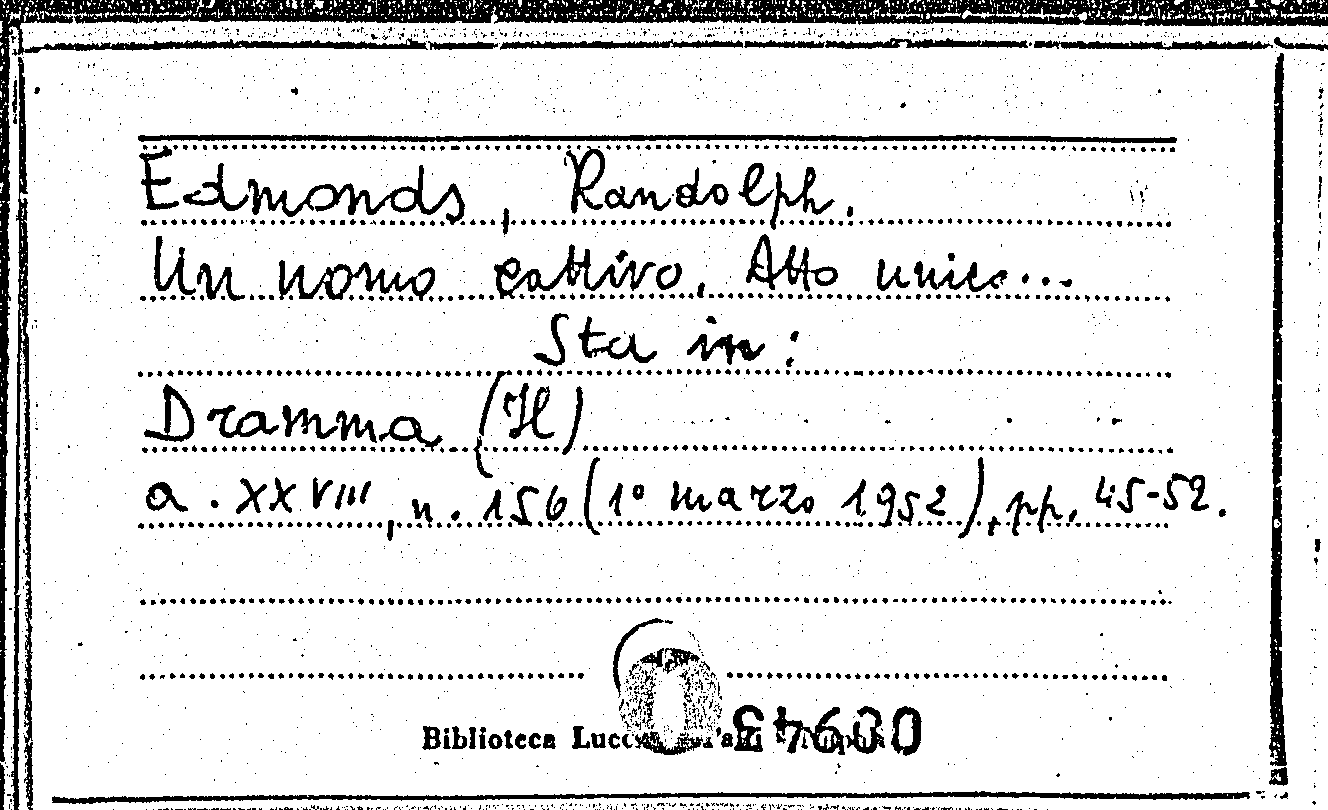 Edmonds, Randolph.
Un uomo cattivo. Atto unico...
Sta in:
Dramma (Il)
a. XXVIII, n. 156 (1° marzo 1952), pp. 45-52.
Biblioteca